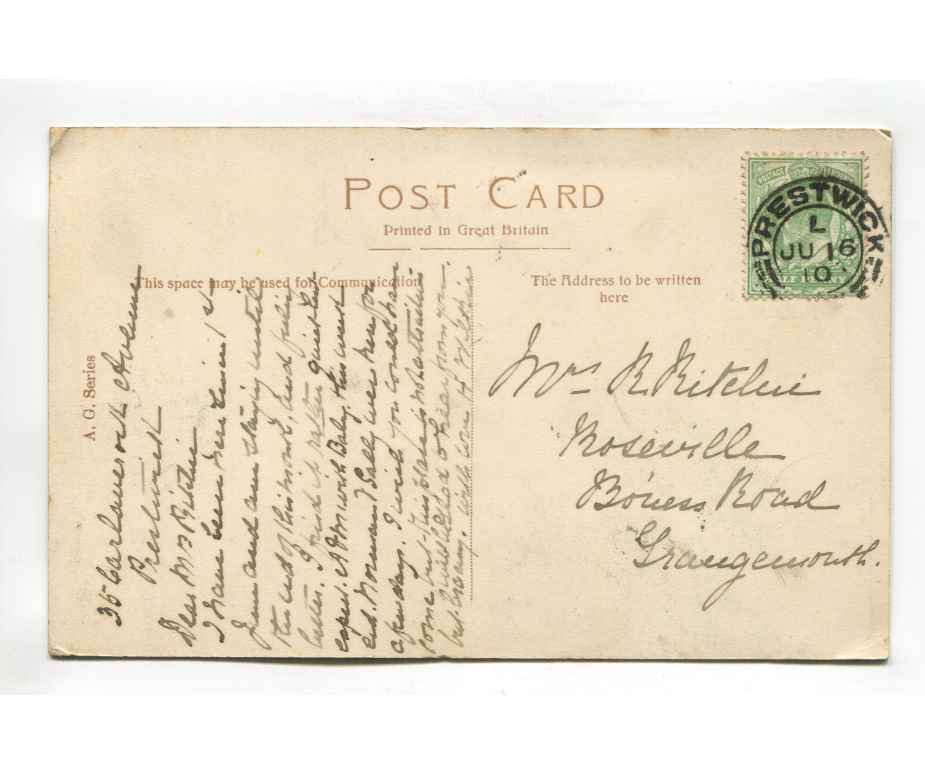 POST CARD
Printed in Great Britain
This space may be used for Communication
The Address to be written
here
A. G. Series
POSTAGE
PRESTWICK
L
JU 16
10
Mrs R Ritchie
Roseville
Bo'ness Road
Grangemouth.
35 Carlaverock Avenue
Prestwick
Dear Mrs Ritchie
I have been here since 1st
June and am staying until
the end of this month, and feeling
better. I find it rather quiet
with Baby this week
end. Norman & Sally were here for
a few days. I wish you could have
come but this place is not